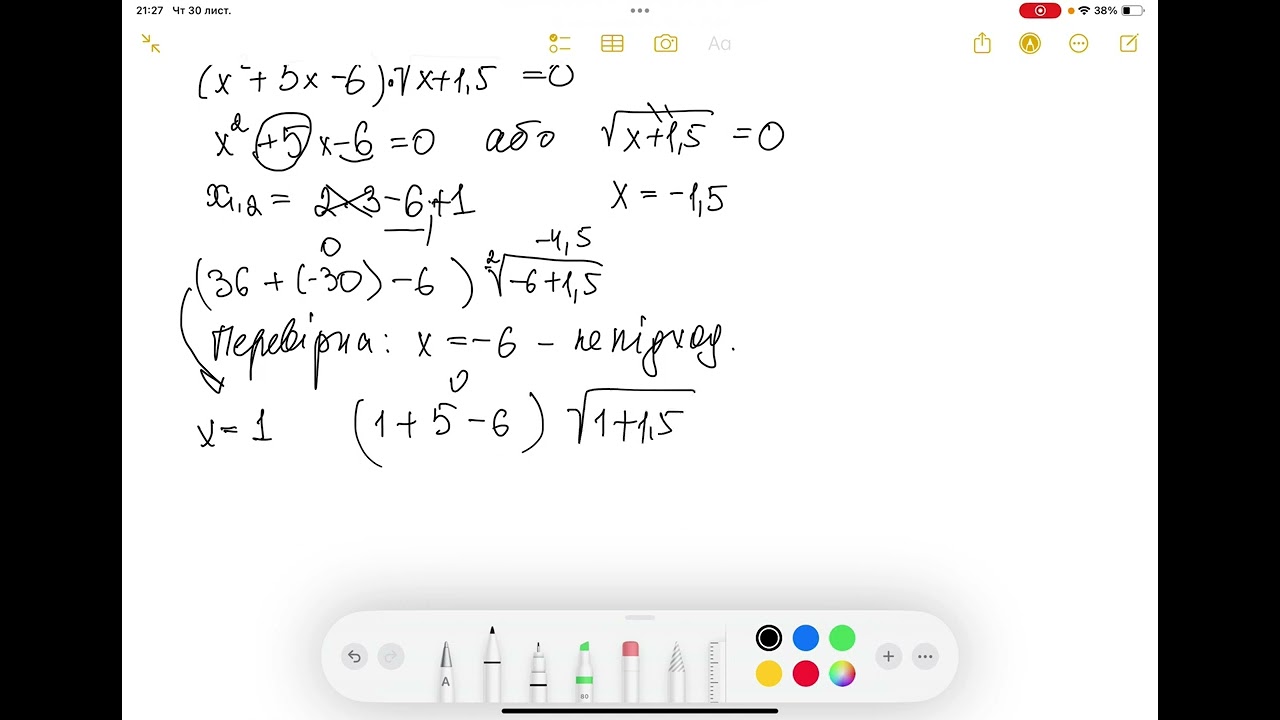 21:27 Чт 30 лист. 38%
Aa
(x² + 5x - 6)·√x+1,5 = 0
x² +5 x - 6 = 0 або √x+1,5 = 0
x₁,₂ = 2 3 -6, +1 x = -1,5
0 -4,5
(36 + (-30) - 6 ) ²√-6+1,5
Перевірка: x = -6 – не підход.
0
x = 1 (1 + 5 - 6) √1+1,5
A
80